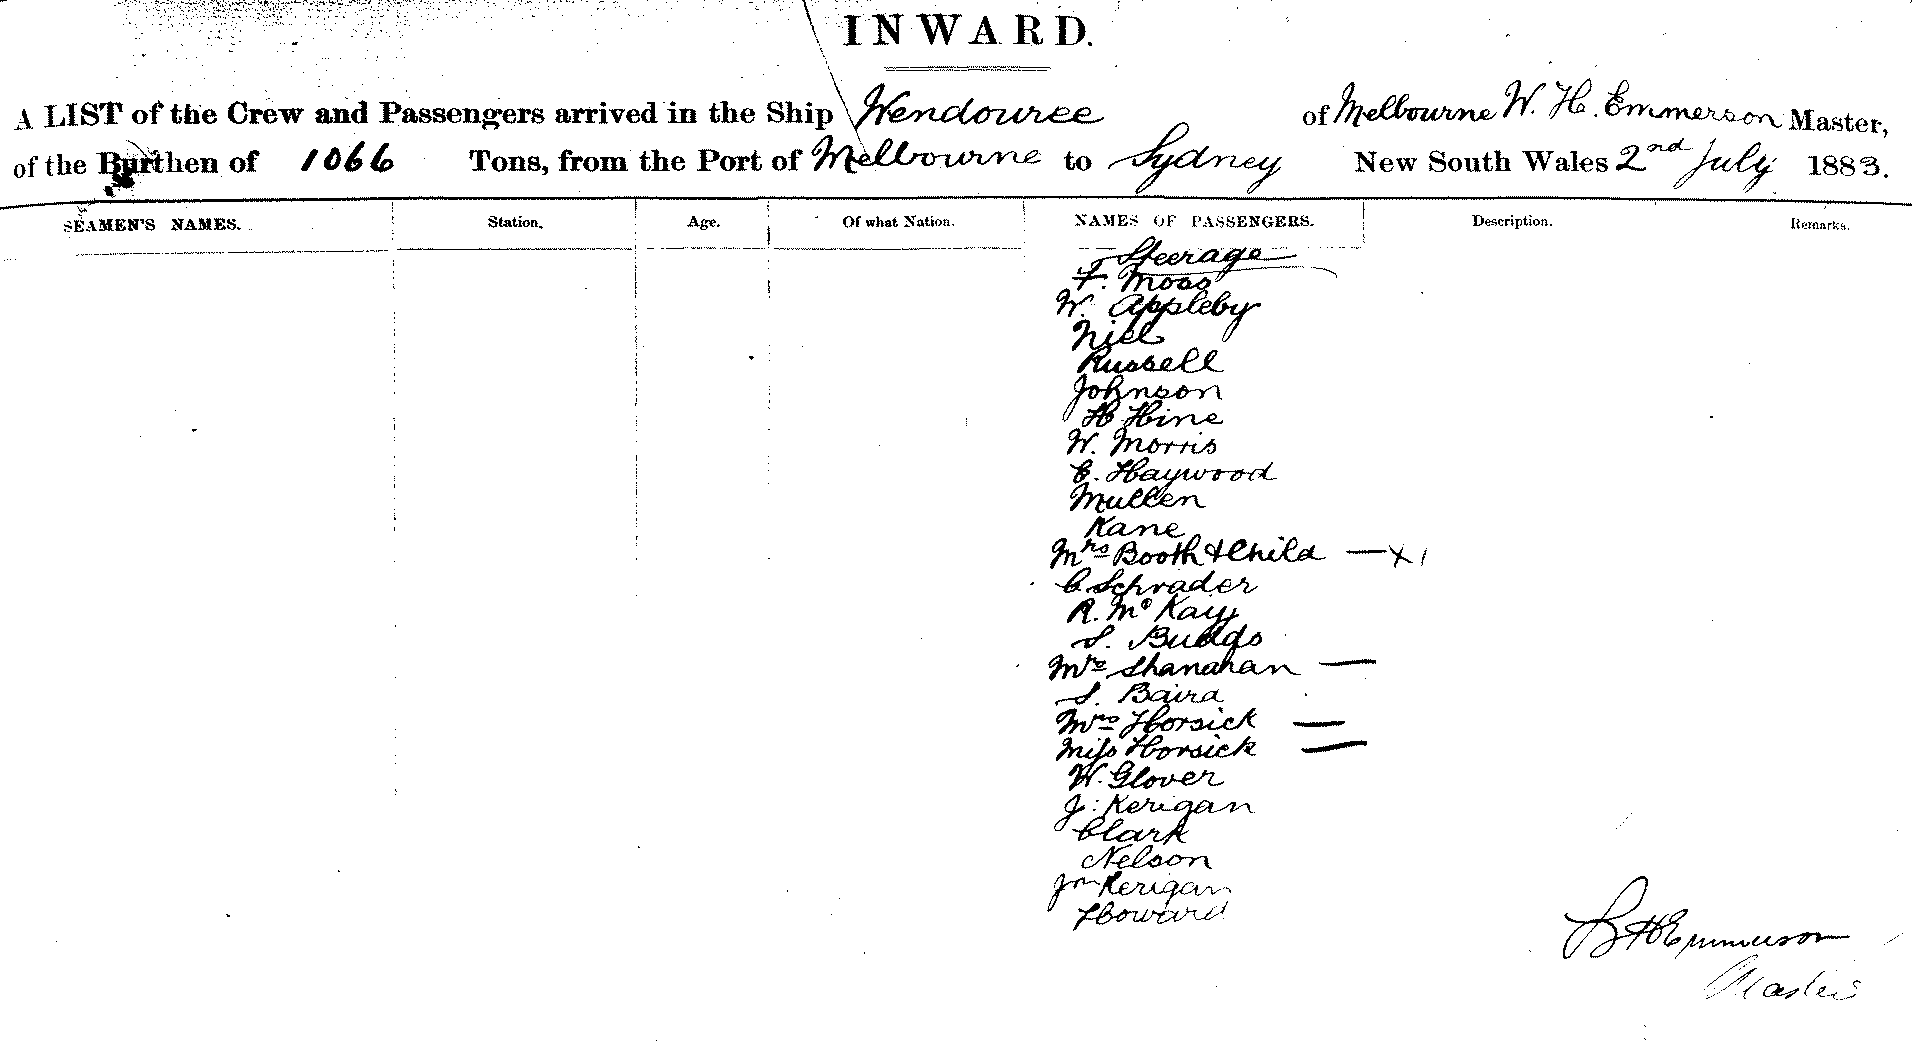 INWARD.
A LIST of the Crew and Passengers arrived in the Ship Wendouree of Melbourne W. H. Emmerson Master,
of the Burthen of 1066 Tons, from the Port of Melbourne to Sydney New South Wales 2nd July 1883.
SEAMEN'S NAMES. Station. Age. Of what Nation. NAMES OF PASSENGERS. Description. Remarks.
Steerage
F. Moss
W. Appleby
Niel
Russell
Johnson
H Hine
W. Morris
C. Haywood
Mullen
Kane
Mrs Booth & Child — x 1
C Schrader
R. Mc Kay
S. Budds
Mrs Shanahan —
S. Baira
Mrs Horsick —
Miss Horsick —
W. Glover
J. Kerigan
Clark
Nelson
Jno Kerigan
Howard
Emmerson
Master